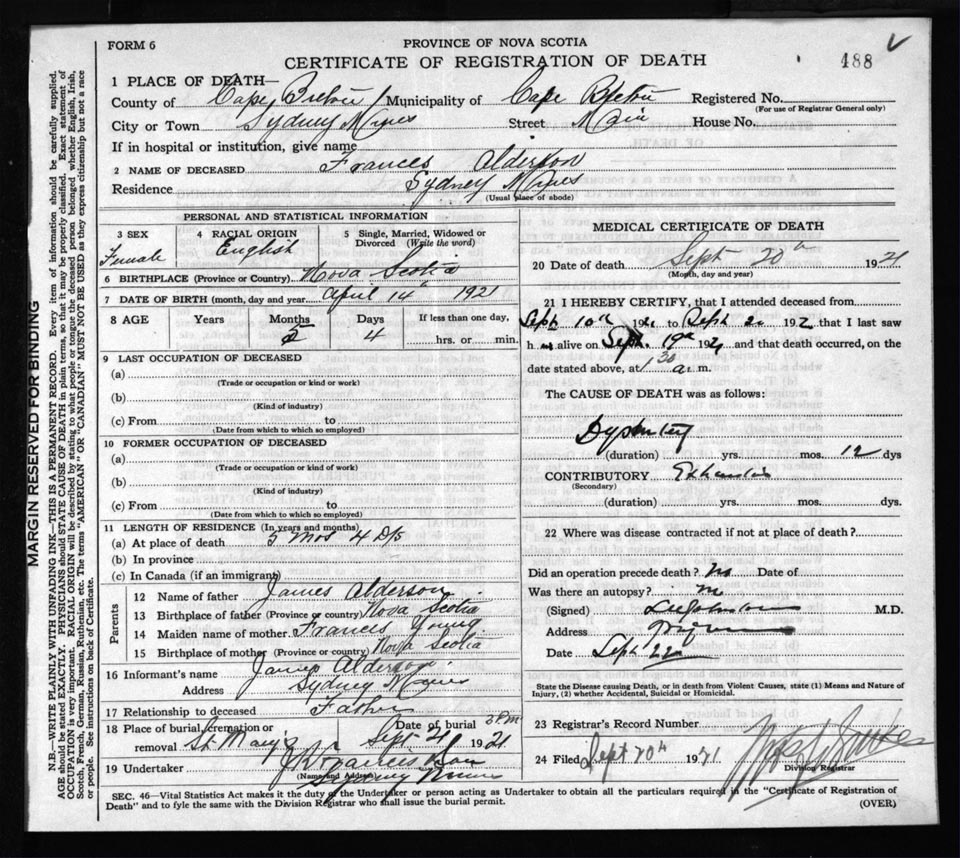 FORM 6
PROVINCE OF NOVA SCOTIA
CERTIFICATE OF REGISTRATION OF DEATH
488
1 PLACE OF DEATH—
County of Cape Breton Municipality of Cape Breton Registered No.
(For use of Registrar General only)
City or Town Sydney Mines Street Main House No.
If in hospital or institution, give name
2 NAME OF DECEASED Frances Alderson
Residence Sydney Mines
(Usual place of abode)
PERSONAL AND STATISTICAL INFORMATION
3 SEX Female
4 RACIAL ORIGIN English
5 Single, Married, Widowed or Divorced (Write the word)
6 BIRTHPLACE (Province or Country) Nova Scotia
7 DATE OF BIRTH (month, day and year April 14th 1921
8 AGE Years Months Days If less than one day,
5 4 hrs. or min.
9 LAST OCCUPATION OF DECEASED
(a)
(Trade or occupation or kind or work)
(b)
(Kind of industry)
(c) From to
(Date from which to which so employed)
10 FORMER OCCUPATION OF DECEASED
(a)
(Trade or occupation or kind of work)
(b)
(Kind of industry)
(c) From to
(Date from which to which so employed)
11 LENGTH OF RESIDENCE (In years and months)
(a) At place of death 5 Mos 4 Ds
(b) In province
(c) In Canada (if an immigrant)
Parents
12 Name of father James Alderson
13 Birthplace of father (Province or country) Nova Scotia
14 Maiden name of mother Frances Young
15 Birthplace of mother (Province or country) Nova Scotia
16 Informant's name James Alderson
Address Sydney Mines
17 Relationship to deceased Father
18 Place of burial, cremation or removal St. Mary's Date of burial 3 PM Sept 21 1921
19 Undertaker Son
(Name and Address) Sydney Mines
MEDICAL CERTIFICATE OF DEATH
20 Date of death Sept 20th 1921
(Month, day and year)
21 I HEREBY CERTIFY, that I attended deceased from
Sept 10th 192 to Sept 2 192 that I last saw
h alive on Sept. 19th 192 and that death occurred, on the
date stated above, at 1 30 a. m.
The CAUSE OF DEATH was as follows:
Dysentery
(duration) yrs. mos. 12 dys
CONTRIBUTORY Exhaustion
(Secondary)
(duration) yrs. mos. dys.
22 Where was disease contracted if not at place of death?
Did an operation precede death? No Date of
Was there an autopsy? No
(Signed) M.D.
Address
Date Sept 22
State the Disease causing Death, or in death from Violent Causes, state (1) Means and Nature of Injury, (2) whether Accidental, Suicidal or Homicidal.
23 Registrar's Record Number
24 Filed Sept 20th 1921
Division Registrar
SEC. 46—Vital Statistics Act makes it the duty of the Undertaker or person acting as Undertaker to obtain all the particulars required in the "Certificate of Registration of
Death" and to fyle the same with the Division Registrar who shall issue the burial permit.
(OVER)
MARGIN RESERVED FOR BINDING
N.B.—WRITE PLAINLY WITH UNFADING INK—THIS IS A PERMANENT RECORD. Every item of information should be carefully supplied.
AGE should be stated EXACTLY. PHYSICIANS should STATE CAUSE OF DEATH in plain terms, so that it may be properly classified. Exact statement of
OCCUPATION is very important. RACIAL ORIGIN will be described by stating to what people or tongue the deceased person belonged whether English, Irish,
Scotch, French, German, Russian, Ruthenian, etc. The terms "AMERICAN" OR "CANADIAN" MUST NOT BE USED as they express citizenship but not a race
or people. See instructions on back of Certificate.